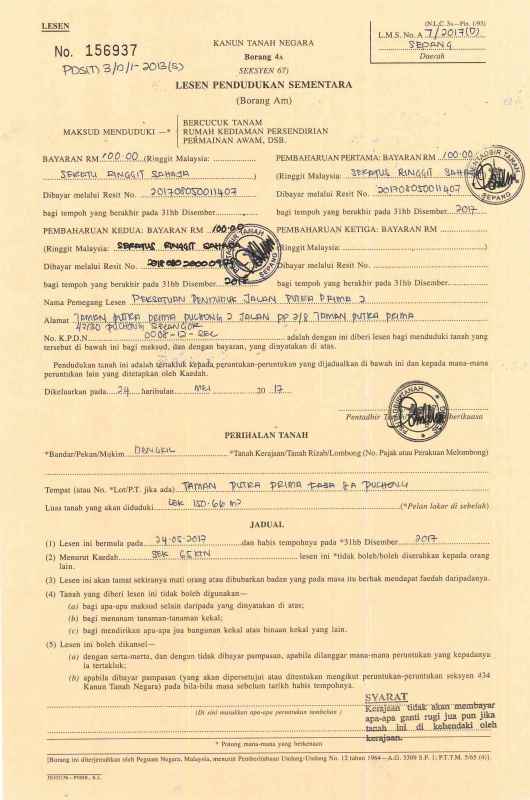 LESEN
(N.L.C. 3A—Pin. 1/93)
L.M.S. No. A 7/2017(D)
SEPANG
Daerah
No. 156937
PDS(T) 3/D/1-2013(S)
KANUN TANAH NEGARA
Borang 4A
(SEKSYEN 67)
LESEN PENDUDUKAN SEMENTARA
(Borang Am)
MAKSUD MENDUDUKI —*
BERCUCUK TANAM
RUMAH KEDIAMAN PERSENDIRIAN
PERMAINAN AWAM, DSB.
BAYARAN RM 100.00 (Ringgit Malaysia:
SERATU RINGGIT SAHAJA)
Dibayar melalui Resit No. 201708050011407
bagi tempoh yang berakhir pada 31hb Disember
PEMBAHARUAN PERTAMA: BAYARAN RM 100.00
(Ringgit Malaysia: SERATUS RINGGIT SAHAJA
Dibayar melalui Resit No. 201708050011407
bagi tempoh yang berakhir pada 31hb Disember 2017
PENTADBIR TANAH
SEPANG
PEMBAHARUAN KEDUA: BAYARAN RM 100.00
(Ringgit Malaysia: SERATUS RINGGIT SAHAJA
Dibayar melalui Resit No.
bagi tempoh yang berakhir pada 31hb Disember
TANAH
SEPANG
PEMBAHARUAN KETIGA: BAYARAN RM
(Ringgit Malaysia: )
Dibayar melalui Resit No.
bagi tempoh yang berakhir pada 31hb Disember
Nama Pemegang Lesen PERSATUAN PENDUDUK JALAN PUTRA PRIMA 2
Alamat TAMAN PUTRA PRIMA PUCHONG 2 JALAN PP 2/8 TAMAN PUTRA PRIMA
47130 PUCHONG SELANGOR
No. K.P.D.N. 0008-12-SEL adalah dengan ini diberi lesen bagi menduduki tanah yang
tersebut di bawah ini bagi maksud, dan dengan bayaran, yang dinyatakan di atas.
Pendudukan tanah ini adalah tertakluk kepada peruntukan-peruntukan yang dijadualkan di bawah ini dan kepada mana-mana
peruntukan lain yang ditetapkan oleh Kaedah.
Dikeluarkan pada 24 haribulan MEI 20 17
Pentadbir Tanah
PERIHALAN TANAH
*Bandar/Pekan/Mukim DENGKIL *Tanah Kerajaan/Tanah Rizab/Lombong (No. Pajak atau Perakuan Melombong)
Tempat (atau No. *Lot/P.T. jika ada) TAMAN PUTRA PRIMA FASA 2A PUCHONG
Luas tanah yang akan diduduki 150.66 m2 (*Pelan lakar di sebelah)
JADUAL
(1) Lesen ini bermula pada 24-05-2017 dan habis tempohnya pada *31hb Disember 2017
(2) Menurut Kaedah SEK 65 KTN lesen ini *tidak boleh/boleh diserahkan kepada orang
lain.
(3) Lesen ini akan tamat sekiranya mati orang atau dibubarkan badan yang pada masa itu berhak mendapat faedah daripadanya.
(4) Tanah yang diberi lesen ini tidak boleh digunakan—
(a) bagi apa-apa maksud selain daripada yang dinyatakan di atas;
(b) bagi menanam tanaman-tanaman kekal;
(c) bagi mendirikan apa-apa jua bangunan kekal atau binaan kekal yang lain.
(5) Lesen ini boleh dikansel—
(a) dengan serta-merta, dan dengan tidak dibayar pampasan, apabila dilanggar mana-mana peruntukan yang kepadanya
ia tertakluk;
(b) apabila dibayar pampasan (yang akan dipersetujui atau ditentukan mengikut peruntukan-peruntukan seksyen 434
Kanun Tanah Negara) pada bila-bila masa sebelum tarikh habis tempohnya.
(Di sini masukkan apa-apa peruntukan tambahan)
SYARAT
Kerajaan tidak akan membayar
apa-apa ganti rugi jua pun jika
tanah ini di kehendaki oleh
kerajaan.
* Potong mana-mana yang berkenaan
[Borang ini diterjemahkan oleh Peguam Negara, Malaysia, menurut Pemberitahuan Undang-Undang No. 12 tahun 1964—A.G. 3309 S.F. 1; P.T.T.M. 5/65 (4)].